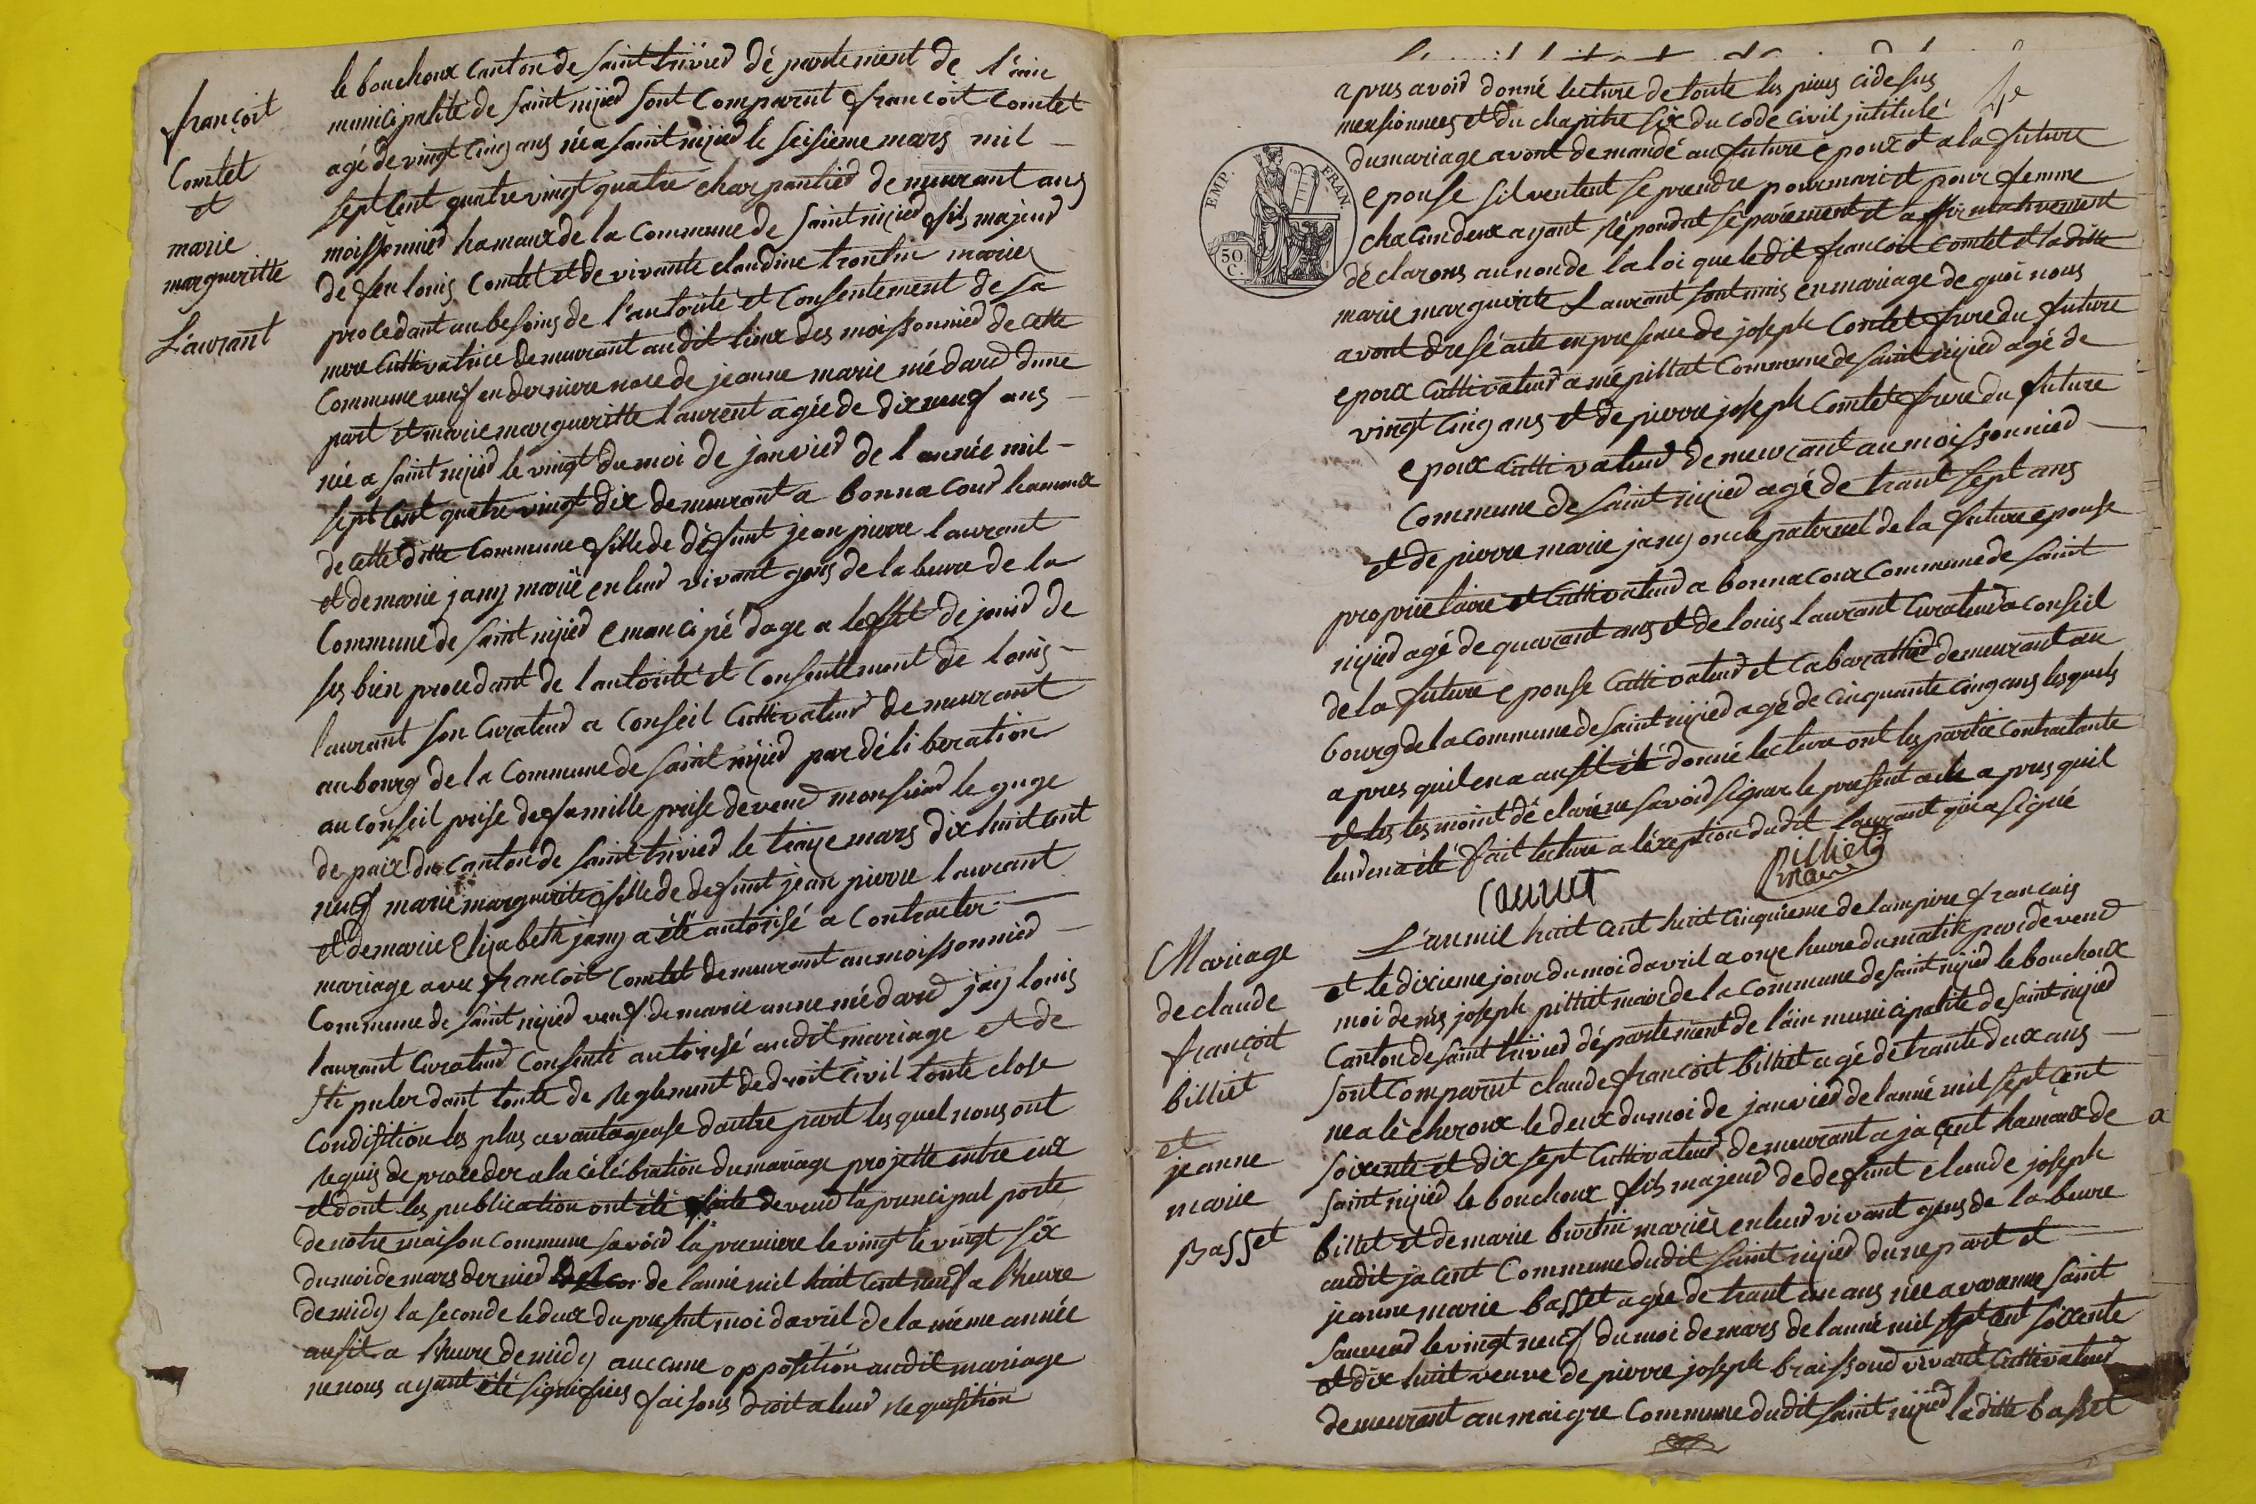 françoit
Comtet
et
marie
margueritte
Laurant
le bouchoux Canton de Saint trivied département de l'ain
municipalité de Saint nijied Sont Comparut françoit Comtet
agé de vingt Cinq ans née a Saint nijied le Seisieme mars mil
Sept Cent quatre vingt quatre charpantied demeurant aus
moissonnied hamaux de la Commune de Saint nijied fils majeur
de feu louis Comtet et de vivante claudine trontin mariez
procedant au besoins de l'autorité et Consentement de Sa
mere Cultivatrice demeurant audit lieux des moissonnied de Cette
Commune veuf en derniere noce de jeanne marie médard dune
part et marie margueritte laurent agée de dix neuf ans
née a Saint nijied le vingt du moi de janvied de l année mil
Sept Cent quatre vingt dix demeurant a bonnacourd hamaux
de Cette ditte Commune fille de défunt jean pierre laurant
et de marie jany mariè en leur vivant gens de labeure de la
Commune de Saint nijied emancipé dage a leffet de jouir de
Ses bien procedant de l autorité et Consentement de louis
laurant Son Curateur a Conseil Cultivateur demeurant
au bourg de la Commune de Saint nijied par déliberation
au Conseil prise de famille prise devend monsieur le guge
de paix du Canton de Saint trivied le traize mars dix huit Cent
neuf marie marguerite fille de defunt jean pierre laurant
et de marie Elizabeth jany a été autorisé a Contracter
mariage avec françoit Comtet demeurant au moissonnied
Commune de Saint nijied veuf de marie anne médard jay louis
laurant Curateur Consenti autorisé audit mariage et de
Stipuler dant toute de Reglement de droit Civil toute close
Condission les plus avantageuse dautre part lesquel nous ont
Requis de proceder a la célébration du mariage projette entre eux
et dont les publication ont été faite devend la principal porte
de notre maison commune Savoir la premiere le vingt le vingt Six
du moi de mars dernied de lanné mil huit Cent neuf a l'heure
de midy la Seconde le deux du present moi davril de la même année
aussit a l'heure de midy auccune opposition audit mariage
ne nous ayant été Signifiées faisons droit a leur Requisition
apres avoir donné lecture de toute les pieces cidesus
mensionnees et du chapitre Six du Code Civil jntitulé
du mariage avont demandé au future epoux et a la future
epouse Sil veutent Se prendre pour mari et pour femme
chacun deux ayant Répondut Séparément et affirmativement
déclarons au non de la loi que le dit françoit Comtet et la ditte
marie marguerite Laurant Sont unis en mariage de quoi nous
avont dresé acte en presence de joseph Comtet frere du future
epoux Cultivateur a mépillat Commune de Saint nijied agé de
vingt Cinq ans et de pierre joseph Comtet frere du future
epoux Cultivateur demeurant au moissonnied
Commune de Saint nijied agé de trant Sept ans
et de pierre marie jany oncle paternel de la future epouse
proprietaire et Cultivateur a bonnacoux Commune de Saint
nijied agé de quarant ans et de louis laurant Curateur a Conseil
de la future epouse Cultivateur et Cabarattier demeurant au
bourg de la Commune de Saint nijied agé de Cinquante Cinq ans lesquels
apres quil en a aussit été donné lecture ont les partie Contractante
et les tesmoint déclaré ne Savoir Signer le present acte apres quil
leur en a été fait lecture a lexeption dudit laurant qui a Signé
EMP. FRAN.
50
C.
Laurent
Pilliet
maire
Mariage
de claude
françoit
billiet
et
jeanne
marie
Basset
L'an mil huit Cent huit Cinquieme de lampire français
et le dixieme jour du moi davril a onze heure du matit pardevend
moi denis joseph pilliet maire de la Commune de Saint nijied le bouchoux
Canton de Saint trivied département de l'ain municipalité de Saint nijied
Sont Comparut claude françoit billiet agé de trante deux ans
ne a lècheroux le deux du moi de janvied de lanné mil Sept Cent
Soixente et dix Sept Cultivateur demeurant a jacent hamaux de
Saint nijied le bouchoux fils majeur de defunt claude joseph
billet et de marie mariés en leur vivant gens de labeure
audit jacent Commune dudit Saint nijied dune part et
jeanne marie basset agée de trant un ans née a varenne Saint
Sauveur le vingt neuf du moi de mars de lanné mil Sept Cent Soixente
et dix huit veuve de pierre joseph braissoud vivant Cultivateur
demeurant au maigre Commune dudit Saint nijied la ditte basset